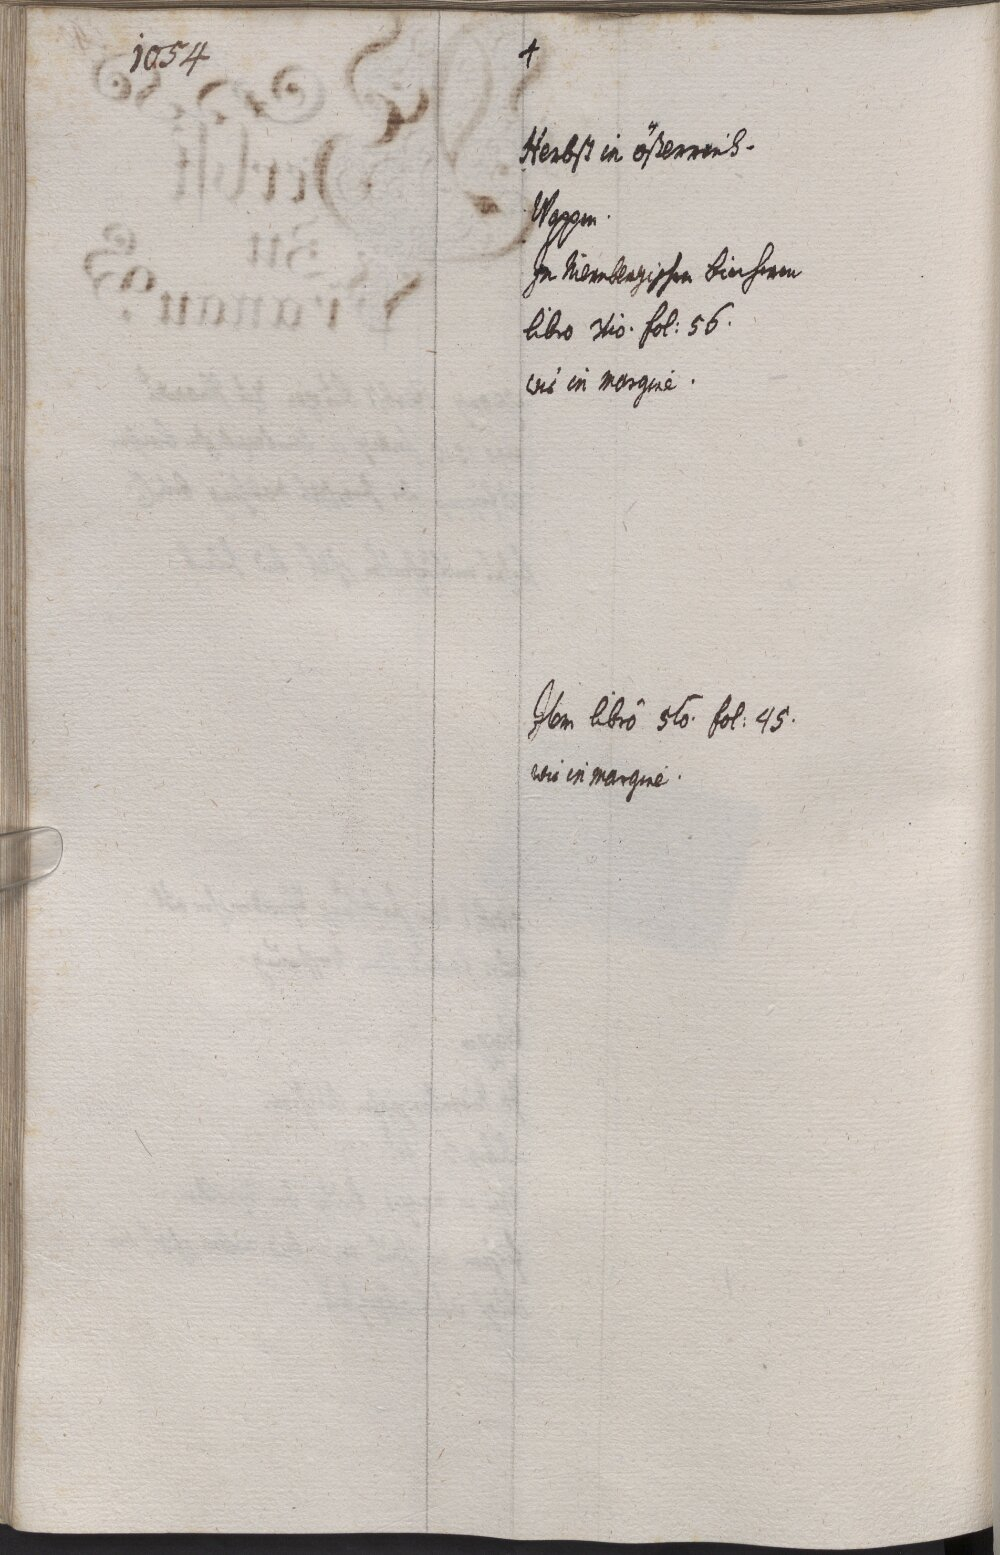 1054
4
Herbst in össterreich.
Wappen.
In Nürnbergischen büechern
libro 4to. fol: 56.
wie in margine.
Item libro 5to. fol: 45.
wie in margine.